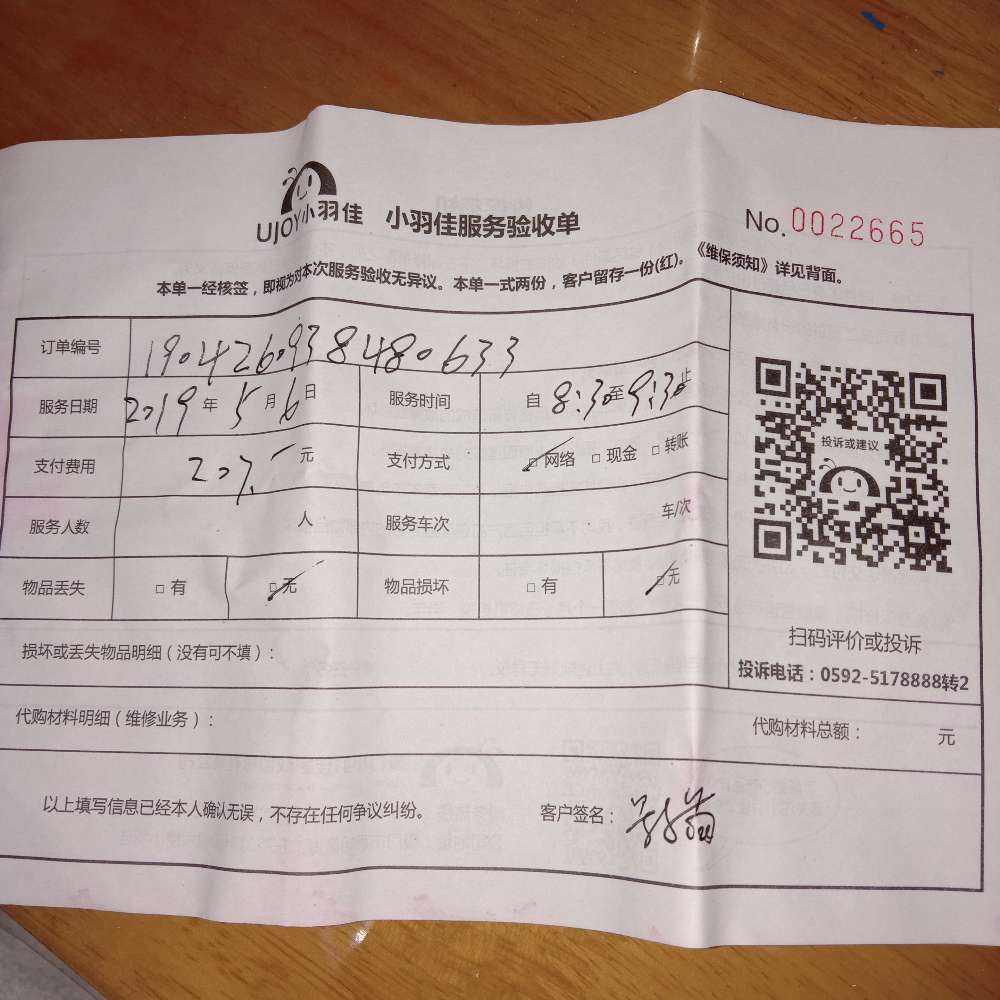 UJOY小羽佳 小羽佳服务验收单 No.0022665
本单一经核签，即视为对本次服务验收无异议。本单一式两份，客户留存一份(红)。《维保须知》详见背面。
订单编号 1904260938480633
服务日期 2019年5月6日 服务时间 自8:30至9:30止
支付费用 元 支付方式 □网络 □现金 □转账
投诉或建议
服务人数 人 服务车次 车/次
物品丢失 □有 □无 物品损坏 □有 □无
扫码评价或投诉
投诉电话：0592-5178888转2
损坏或丢失物品明细（没有可不填）：
代购材料明细（维修业务）： 代购材料总额： 元
以上填写信息已经本人确认无误，不存在任何争议纠纷。 客户签名：